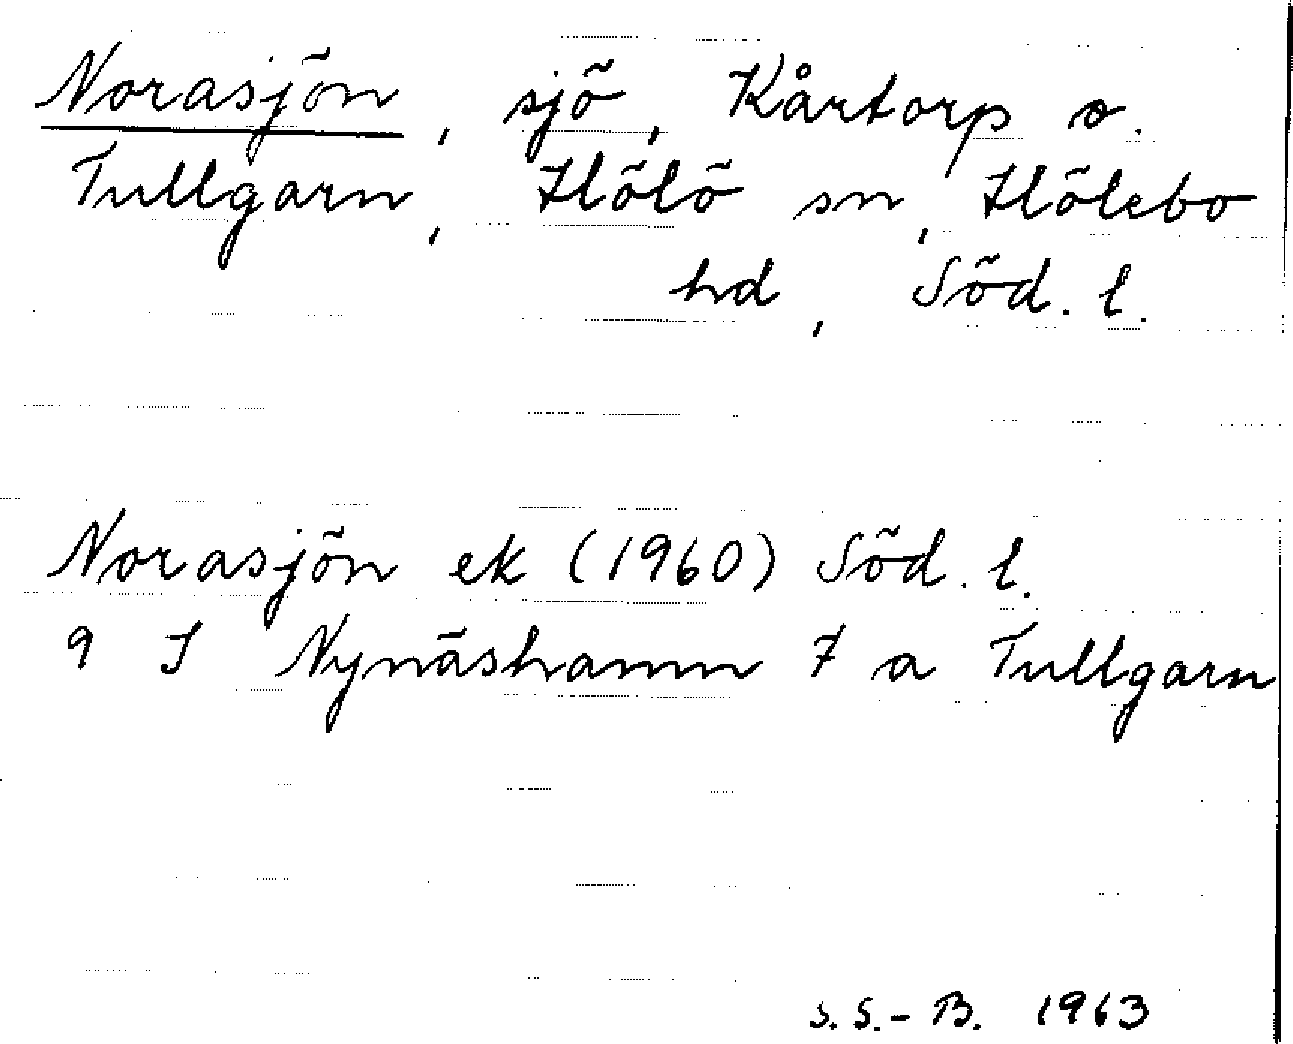 Norasjön, sjö, Kårtorp o.
Tullgarn, Hölö sn, Hölebo
hd, Söd. l.
Norasjön ek (1960) Söd. l.
9 I Nynäshamn 7 a Tullgarn
S.S.-B. 1963